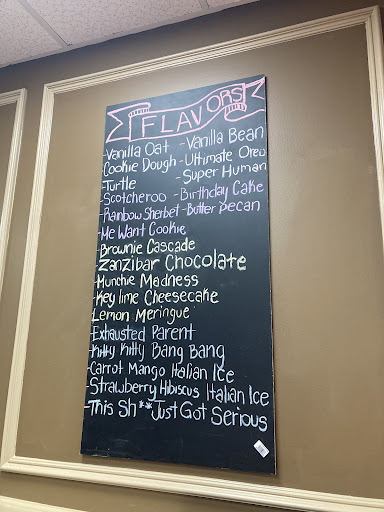 FLAVORS
-Vanilla Oat -Vanilla Bean
Cookie Dough -Ultimate Oreo
-Turtle -Super Human
-Scotcheroo -Birthday Cake
-Rainbow Sherbet -Butter Pecan
-Me Want Cookie
-Brownie Cascade
-Zanzibar Chocolate
-Munchie Madness
-Key lime Cheesecake
-Lemon Meringue
-Exhausted Parent
-Kitty Kitty Bang Bang
-Carrot Mango Italian Ice
-Strawberry Hibiscus Italian Ice
-This Sh** Just Got Serious